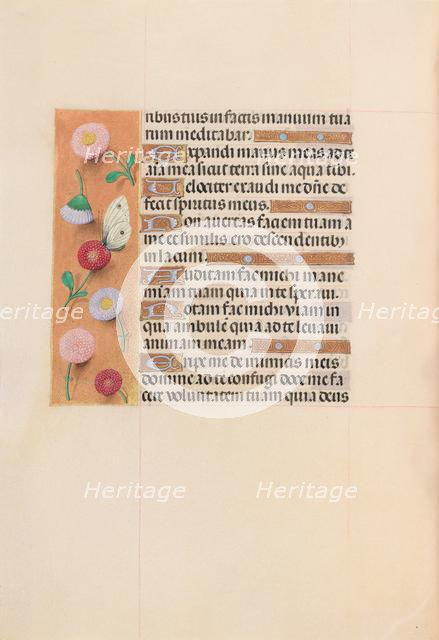 ribus tuis in factis manuum tua
rum meditabar.
Expandi manus meas ad te
aīa mea sicut terra sine aqua tibi.
Velociter exaudi me dn̄e de
fecit spiritus meus.
Non avertas faciem tuam a
me et similis ero descendentibus
in lacum.
Auditam fac michi mane
Heritage
Heritage
Heritage
miam tuam quia in te speravi.
Notam fac michi viam in
qua ambulem quia ad te levavi
animam meam.
Eripe me de inimicis meis
domine ad te confugi doce me fa
cere voluntatem tuam quia deus
Heritage
Heritage